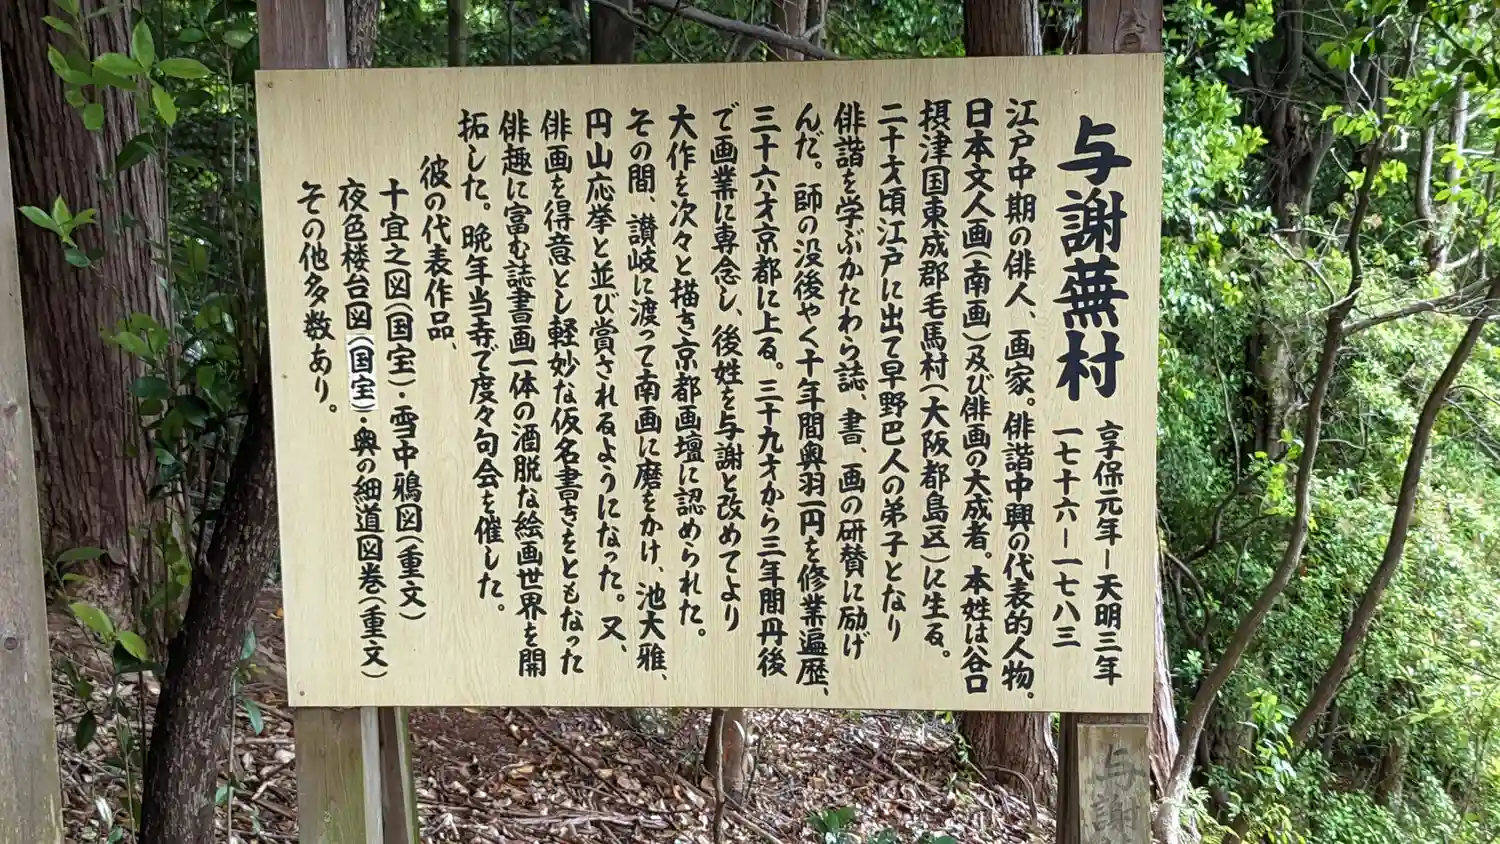 与謝蕪村
享保元年－天明三年
一七十六－一七八三
江戸中期の俳人、画家。俳諧中興の代表的人物。
日本文人画(南画)及び俳画の大成者。本姓は谷口
摂津国東成郡毛馬村(大阪都島区)に生る。
二十才頃江戸に出て早野巴人の弟子となり
俳諧を学ぶかたわら誌、書、画の研賛に励げ
んだ。師の没後やく十年間奥羽一円を修業遍歴、
三十六才京都に上る。三十九才から三年間丹後
で画業に専念し、後姓を与謝と改めてより
大作を次々と描き京都画壇に認められた。
その間、讃岐に渡って南画に磨をかけ、池大雅、
円山応挙と並び賞されるようになった。又、
俳画を得意とし軽妙な仮名書きをともなった
俳趣に富む誌書画一体の酒脱な絵画世界を開
拓した。晩年当寺で度々句会を催した。
彼の代表作品、
十宜之図(国宝)・雪中鴉図(重文)
夜色楼台図(国宝)・奥の細道図巻(重文)
その他多数あり。
与謝